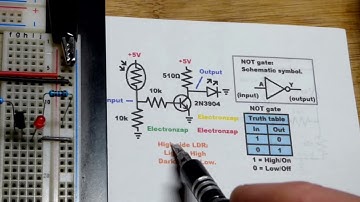 f g h i j
+5V
+5V
510Ω
Output
10k
Input
2N3904
10k
Electronzap
Electronzap
Electronzap
High side LDR:
High
Low.
NOT gate:
Schematic symbol.
A
Y
(input)
(output)
NOT gate
Truth table
In Out
1 0
0 1
1 = High/On
0 = Low/Off